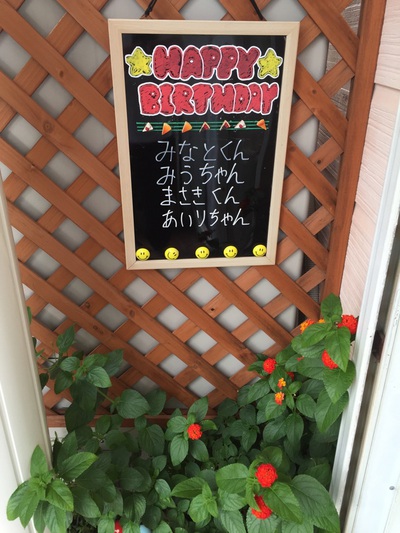 HAPPY
BIRTHDAY
みなとくん
みうちゃん
まさきくん
あいりちゃん